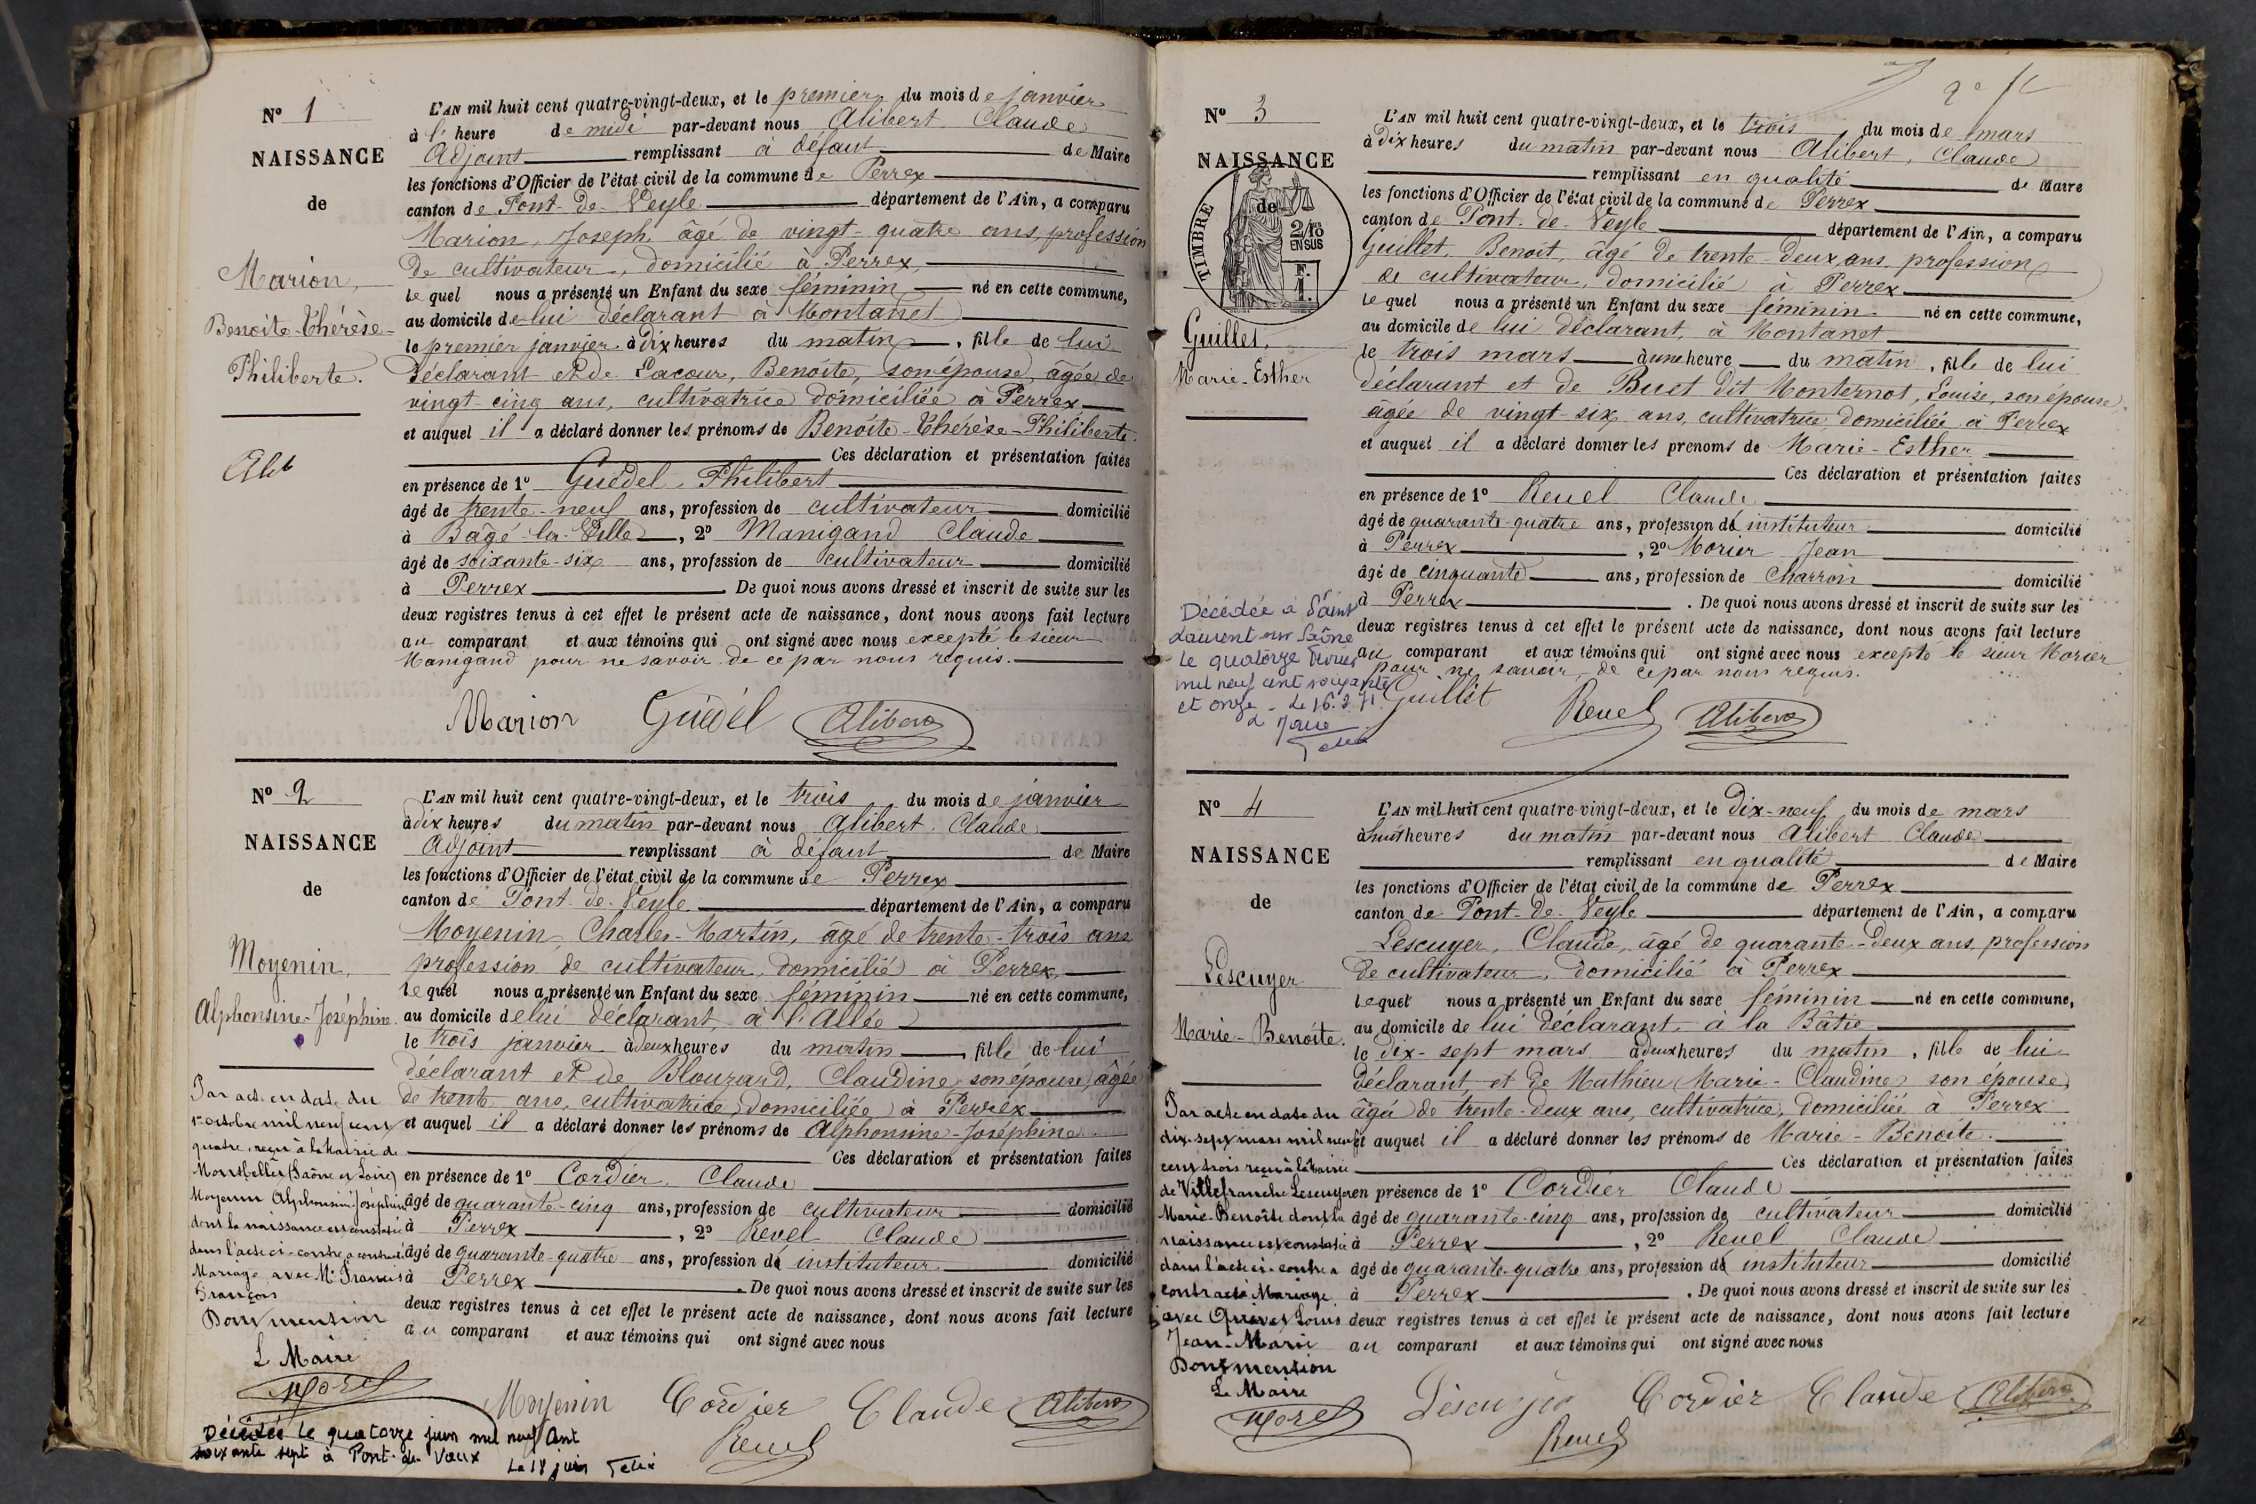 N° 1
NAISSANCE
de
Marion,
Benoite-Thérèse-
Philiberte.
L'AN mil huit cent quatre-vingt-deux, et le premier du mois de janvier
à l' heure de midi par-devant nous Alibert Claude
Adjoint remplissant à défaut de Maire
les fonctions d'Officier de l'état civil de la commune de Perrex
canton de Pont-de-Veyle département de l'Ain, a comparu
Marion, Joseph, âgé de vingt-quatre ans, profession
de cultivateur, domicilié à Perrex,
lequel nous a présenté un Enfant du sexe féminin né en cette commune,
au domicile de lui déclarant à Montanet
le premier janvier à dix heures du matin, fille de lui
déclarant et de Lacour, Benoite, son épouse, âgée de
vingt-cinq ans, cultivatrice domiciliée à Perrex
et auquel il a déclaré donner les prénoms de Benoite-Thérèse-Philiberte.
Ces déclaration et présentation faites
en présence de 1° Guédel, Philibert
âgé de trente-neuf ans, profession de cultivateur domicilié
à Bâgé-la-Ville, 2° Manigand Claude
âgé de soixante-six ans, profession de cultivateur domicilié
à Perrex De quoi nous avons dressé et inscrit de suite sur les
deux registres tenus à cet effet le présent acte de naissance, dont nous avons fait lecture
au comparant et aux témoins qui ont signé avec nous excepté le sieur
Manigand pour ne savoir de ce par nous requis.
Marion Guédel Alibert
N° 2
NAISSANCE
de
Moyenin,
Alphonsine-Joséphine.
Par acte en date du
1er octobre mil neuf cent
quatre, reçu à la Mairie de
Montbellet (Saône et Loire)
Moyenin Alphonsine Joséphine
dont la naissance est constatée
dans l'acte ci-contre a contracté
Mariage avec Mr Francis
François
Dont mention
Le Maire
Morel
Décédée le quatorze juin mil neuf cent
soixante sept à Pont-de-Vaux Le 18 juin
L'AN mil huit cent quatre-vingt-deux, et le trois du mois de janvier
à dix heures du matin par-devant nous Alibert, Claude
Adjoint remplissant à défaut de Maire
les fonctions d'Officier de l'état civil de la commune de Perrex
canton de Pont-de-Veyle département de l'Ain, a comparu
Moyenin, Charles-Martin, âgé de trente-trois ans
profession de cultivateur, domicilié à Perrex,
lequel nous a présenté un Enfant du sexe féminin né en cette commune,
au domicile de lui déclarant, à l'Allée
le trois janvier à deux heures du matin, fille de lui
déclarant et de Blouzard, Claudine, son épouse, âgée
de trente ans, cultivatrice, domiciliée à Perrex
et auquel il a déclaré donner les prénoms de Alphonsine-Joséphine
Ces déclaration et présentation faites
en présence de 1° Cordier Claude
âgé de quarante-cinq ans, profession de cultivateur domicilié
à Perrex, 2° Revel Claude
âgé de quarante-quatre ans, profession de instituteur domicilié
à Perrex. De quoi nous avons dressé et inscrit de suite sur les
deux registres tenus à cet effet le présent acte de naissance, dont nous avons fait lecture
au comparant et aux témoins qui ont signé avec nous
Moyenin Cordier Claude Alibert
Revel
N° 3
NAISSANCE
de
TIMBRE
2/10
EN SUS
F.
1.
Guillet,
Marie-Esther
Décédée à Saint
Laurent sur Saône
le quatorze février
mil neuf cent soixante
et onze. Le 16.2.71.
L'AN mil huit cent quatre-vingt-deux, et le trois du mois de mars
à dix heures du matin par-devant nous Alibert, Claude
remplissant en qualité de Maire
les fonctions d'Officier de l'état civil de la commune de Perrex
canton de Pont-de-Veyle département de l'Ain, a comparu
Guillet, Benoit, âgé de trente-deux ans profession
de cultivateur, domicilié à Perrex
lequel nous a présenté un Enfant du sexe féminin né en cette commune,
au domicile de lui déclarant, à Montanet
le trois mars à une heure du matin, fille de lui
déclarant et de Buet dit Monternot, Louise, son épouse,
âgée de vingt-six ans, cultivatrice, domiciliée à Perrex
et auquel il a déclaré donner les prénoms de Marie-Esther
Ces déclaration et présentation faites
en présence de 1° Revel Claude
âgé de quarante-quatre ans, profession de instituteur domicilié
à Perrex, 2° Morier Jean
âgé de cinquante ans, profession de charron domicilié
à Perrex. De quoi nous avons dressé et inscrit de suite sur les
deux registres tenus à cet effet le présent acte de naissance, dont nous avons fait lecture
au comparant et aux témoins qui ont signé avec nous excepté le sieur Morier
pour ne savoir, de ce par nous requis.
Guillet Revel Alibert
N° 4
NAISSANCE
de
Lescuyer
Marie-Benoite.
Par acte en date du
dix-sept mars mil neuf
cent trois reçu à la Mairie
de Villefranche Lescuyer
Marie-Benoite dont la
naissance est constatée
dans l'acte ci-contre a
contracté Mariage
avec Louis
Jean-Marie
Dont mention
Le Maire
Morel
L'AN mil huit cent quatre-vingt-deux, et le dix-neuf du mois de mars
à huit heures du matin par-devant nous Alibert Claude
remplissant en qualité de Maire
les fonctions d'Officier de l'état civil de la commune de Perrex
canton de Pont-de-Veyle département de l'Ain, a comparu
Lescuyer, Claude, âgé de quarante-deux ans, profession
de cultivateur, domicilié à Perrex
lequel nous a présenté un Enfant du sexe féminin né en cette commune,
au domicile de lui déclarant, à la Bâtie
le dix-sept mars à deux heures du matin, fille de lui
déclarant, et de Mathieu Marie-Claudine, son épouse,
âgée de trente-deux ans, cultivatrice, domiciliée à Perrex
et auquel il a déclaré donner les prénoms de Marie-Benoite.
Ces déclaration et présentation faites
en présence de 1° Cordier Claude
âgé de quarante-cinq ans, profession de cultivateur domicilié
à Perrex, 2° Revel Claude
âgé de quarante-quatre ans, profession de instituteur domicilié
à Perrex. De quoi nous avons dressé et inscrit de suite sur les
deux registres tenus à cet effet le présent acte de naissance, dont nous avons fait lecture
au comparant et aux témoins qui ont signé avec nous
Lescuyer Cordier Claude Alibert
Revel